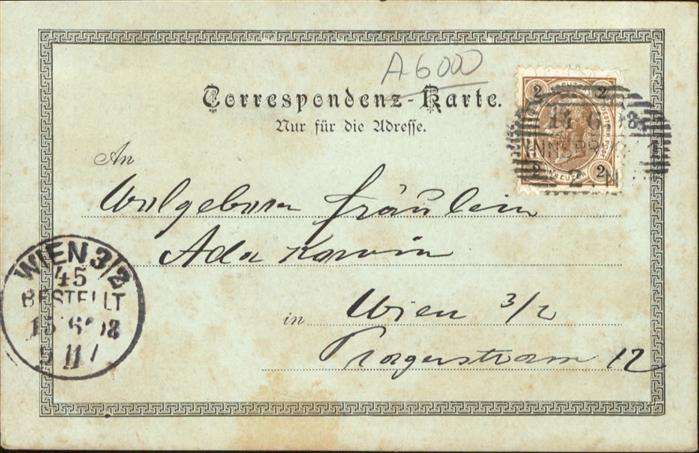 A6000
Correspondenz-Karte.
Nur für die Adresse.
2 2
14 6 98
INNSBRUCK
2 2
An
Wolgeboren Fräulein
Ada
in Wien 3/2
12
WIEN 3/2
45
BESTELLT
15 6 98